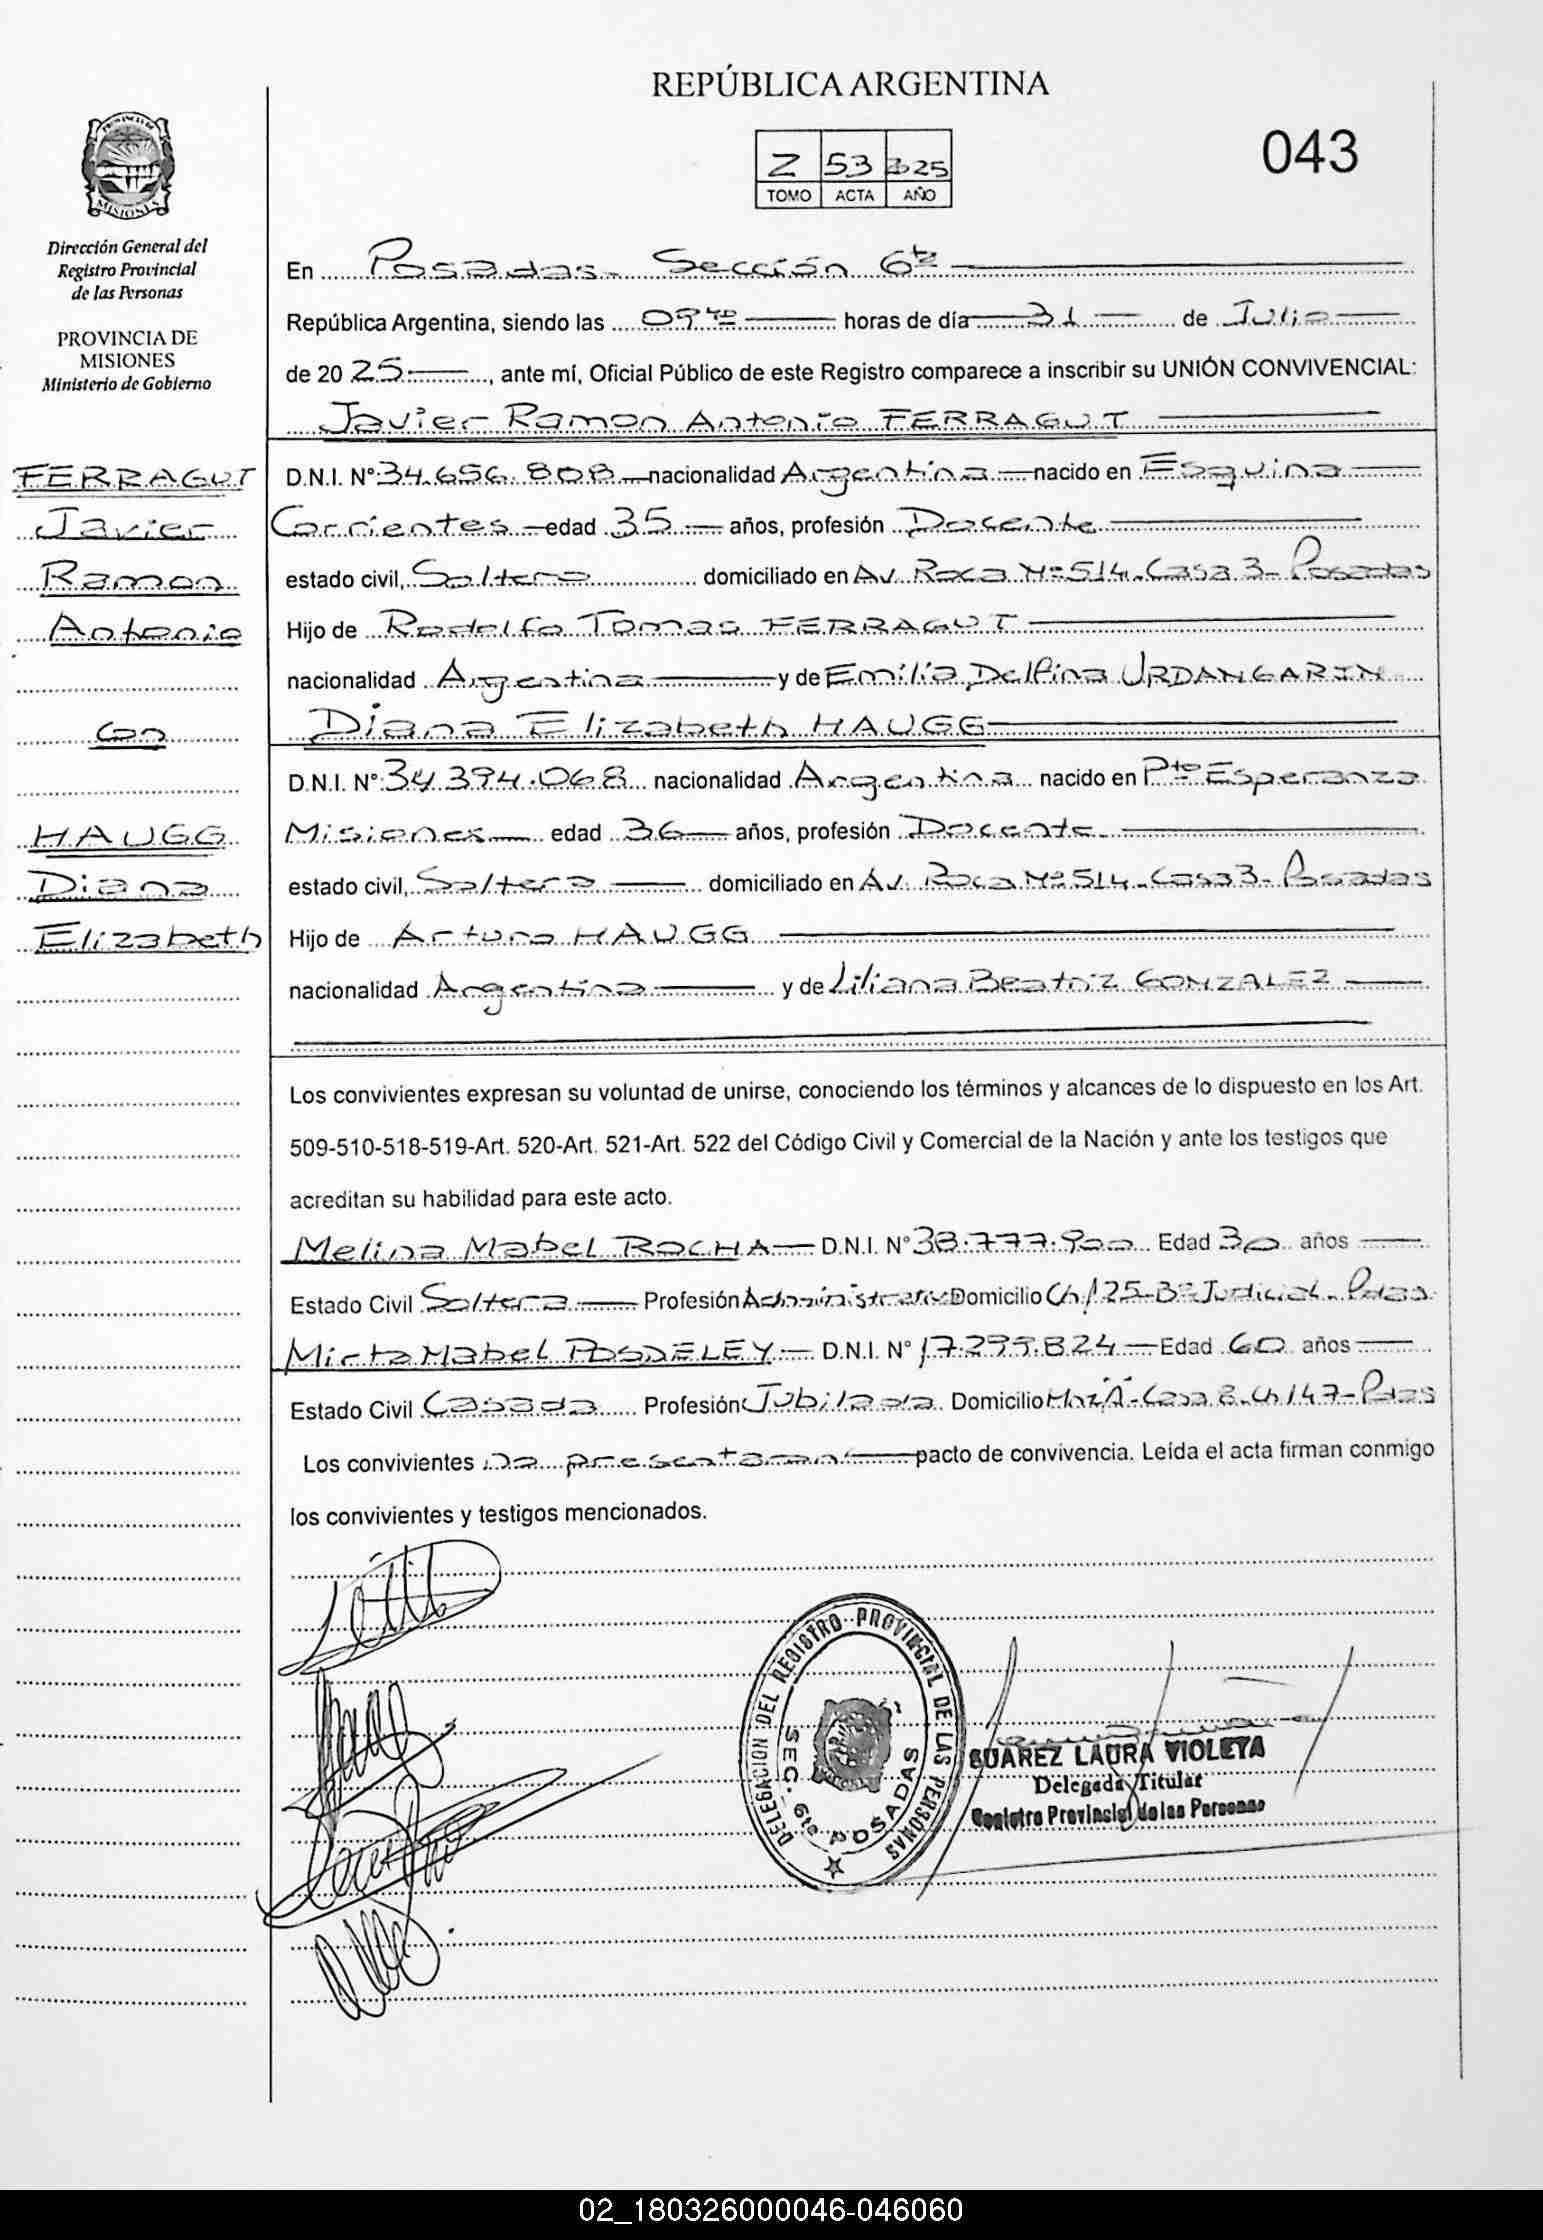 REPÚBLICA ARGENTINA
043
2 53 2025
TOMO ACTA AÑO
PROVINCIA DE MISIONES
Dirección General del
Registro Provincial
de las Personas
PROVINCIA DE
MISIONES
Ministerio de Gobierno
FERRAGUT
Javier
Ramon
Antonio
con
HAUGG
Diana
Elizabeth
En Posadas - Sección 6ta
República Argentina, siendo las 09 horas de día 31 de Julio
de 20 25, ante mí, Oficial Público de este Registro comparece a inscribir su UNIÓN CONVIVENCIAL:
Javier Ramon Antonio FERRAGUT
D.N.I. Nº 34.656.808 nacionalidad Argentina nacido en Esquina
Corrientes edad 35 años, profesión Docente
estado civil, Soltero domiciliado en Av. Roca Nº 514 - Casa 3 - Posadas
Hijo de Rodolfo Tomas FERRAGUT
nacionalidad Argentina y de Emilia Delfina URDANGARIN
Diana Elizabeth HAUGG
D.N.I. Nº 34.394.068 nacionalidad Argentina nacido en Pto Esperanza
Misiones edad 36 años, profesión Docente
estado civil, Soltera domiciliado en Av. Roca Nº 514 - Casa 3 - Posadas
Hijo de Arturo HAUGG
nacionalidad Argentina y de Liliana Beatriz GONZALEZ
Los convivientes expresan su voluntad de unirse, conociendo los términos y alcances de lo dispuesto en los Art.
509-510-518-519-Art. 520-Art. 521-Art. 522 del Código Civil y Comercial de la Nación y ante los testigos que
acreditan su habilidad para este acto.
Melina Mabel ROCHA D.N.I. Nº 38.777.900 Edad 30 años
Estado Civil Soltera Profesión Administrativa Domicilio Ch 125 - Bº Judicial - Pdas
Mirta Mabel POSDELEY D.N.I. Nº 17.299.824 Edad 60 años
Estado Civil Casada Profesión Jubilada Domicilio Mnz "A" - Casa 8 - Ch 147 - Pdas
Los convivientes no presentaron pacto de convivencia. Leída el acta firman conmigo
los convivientes y testigos mencionados.
DELEGACION DEL REGISTRO PROVINCIAL DE LAS PERSONAS
SEC. 6ta POSADAS
SUAREZ LAURA VIOLETA
Delegada Titular
Registro Provincial de las Personas
02_180326000046-046060